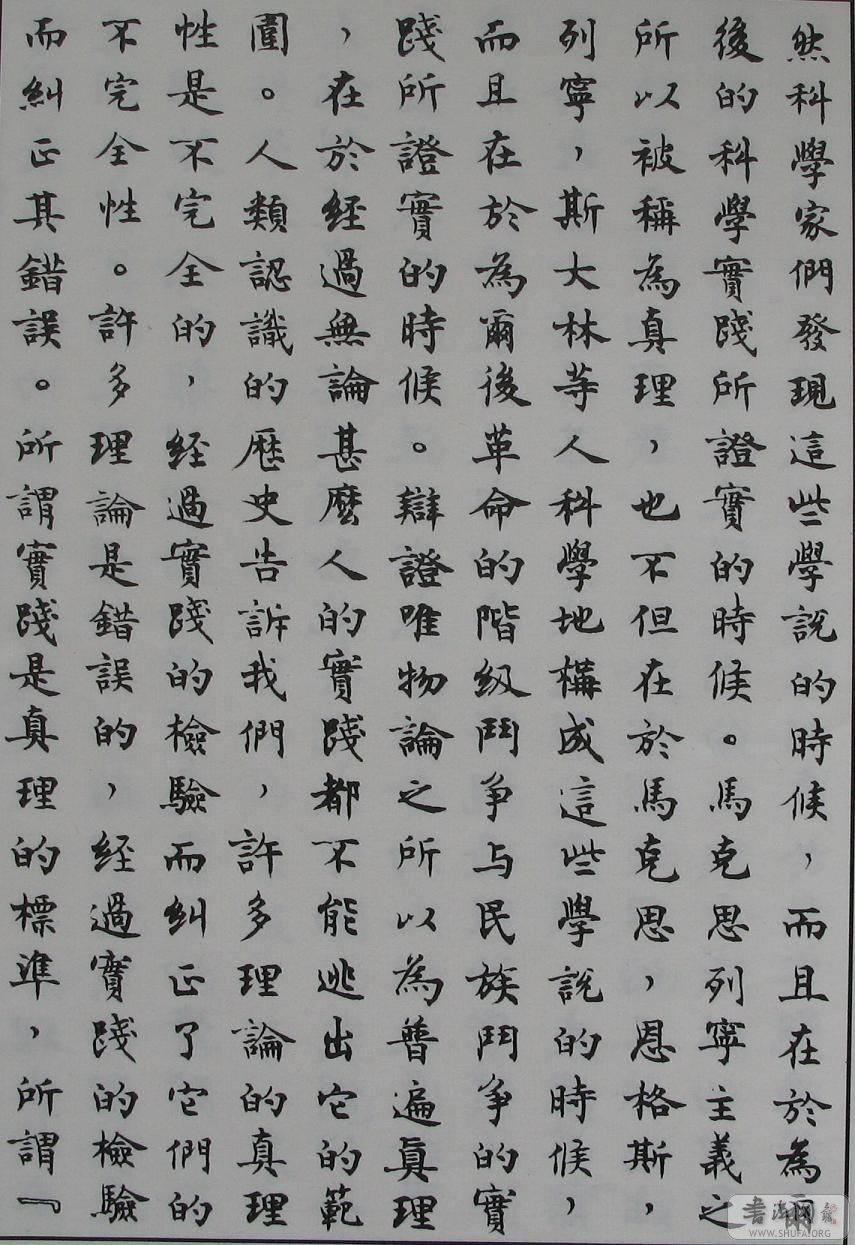 然科學家們發現這些學說的時候，而且在於為爾
後的科學實踐所證實的時候。馬克思列寧主義之
所以被稱為真理，也不但在於馬克思，恩格斯，
列寧，斯大林等人科學地構成這些學說的時候，
而且在於為爾後革命的階級鬥争与民族鬥争的實
踐所證實的時候。辯證唯物論之所以為普遍真理
，在於经過無論甚麼人的實踐都不能逃出它的範
圍。人類認識的歷史告訴我們，許多理論的真理
性是不完全的，经過實踐的檢驗而糾正了它們的
不完全性。許多理論是錯誤的，经過實踐的檢驗
而糾正其錯誤。所謂實踐是真理的標準，所謂『
书法网
WWW.SHUFA.ORG